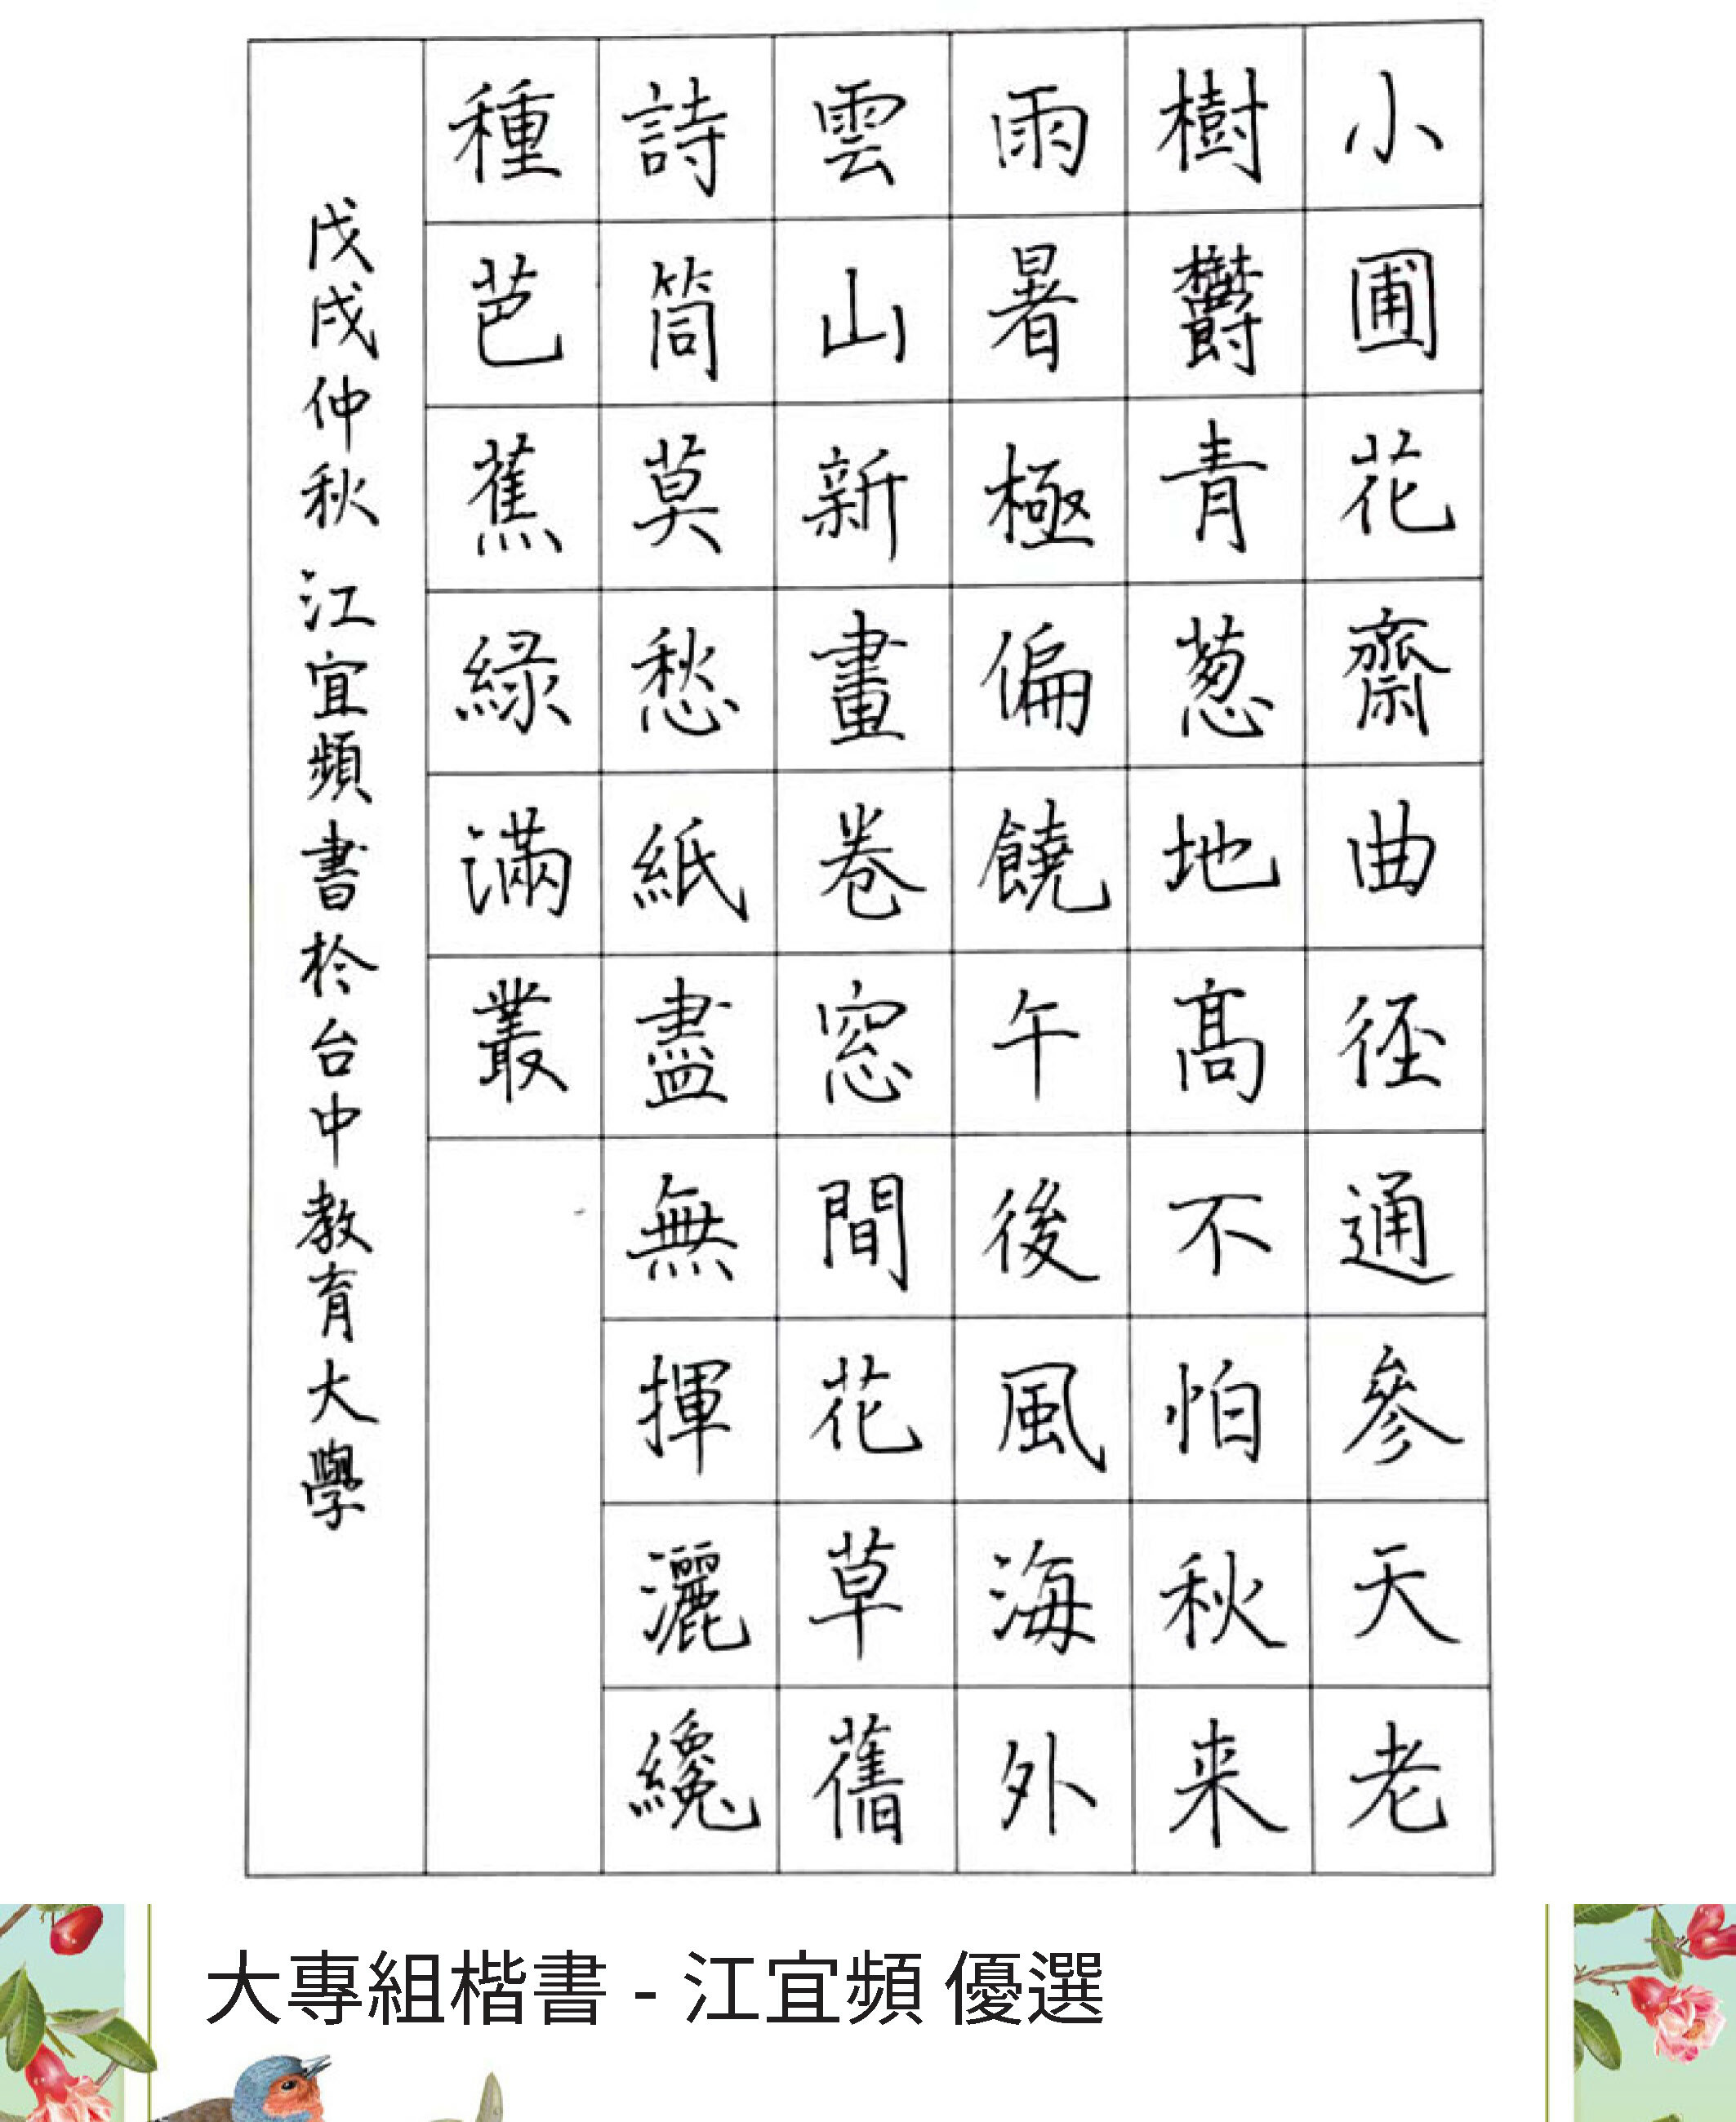 小圃花齋曲徑通參天老
樹欝青葱地高不怕秋来
雨暑極偏饒午後風海外
雲山新畫卷窓間花草舊
詩筒莫愁紙盡無揮灑纔
種芭蕉綠滿叢
戊戌仲秋江宜頻書於台中教育大學
大專組楷書 - 江宜頻 優選